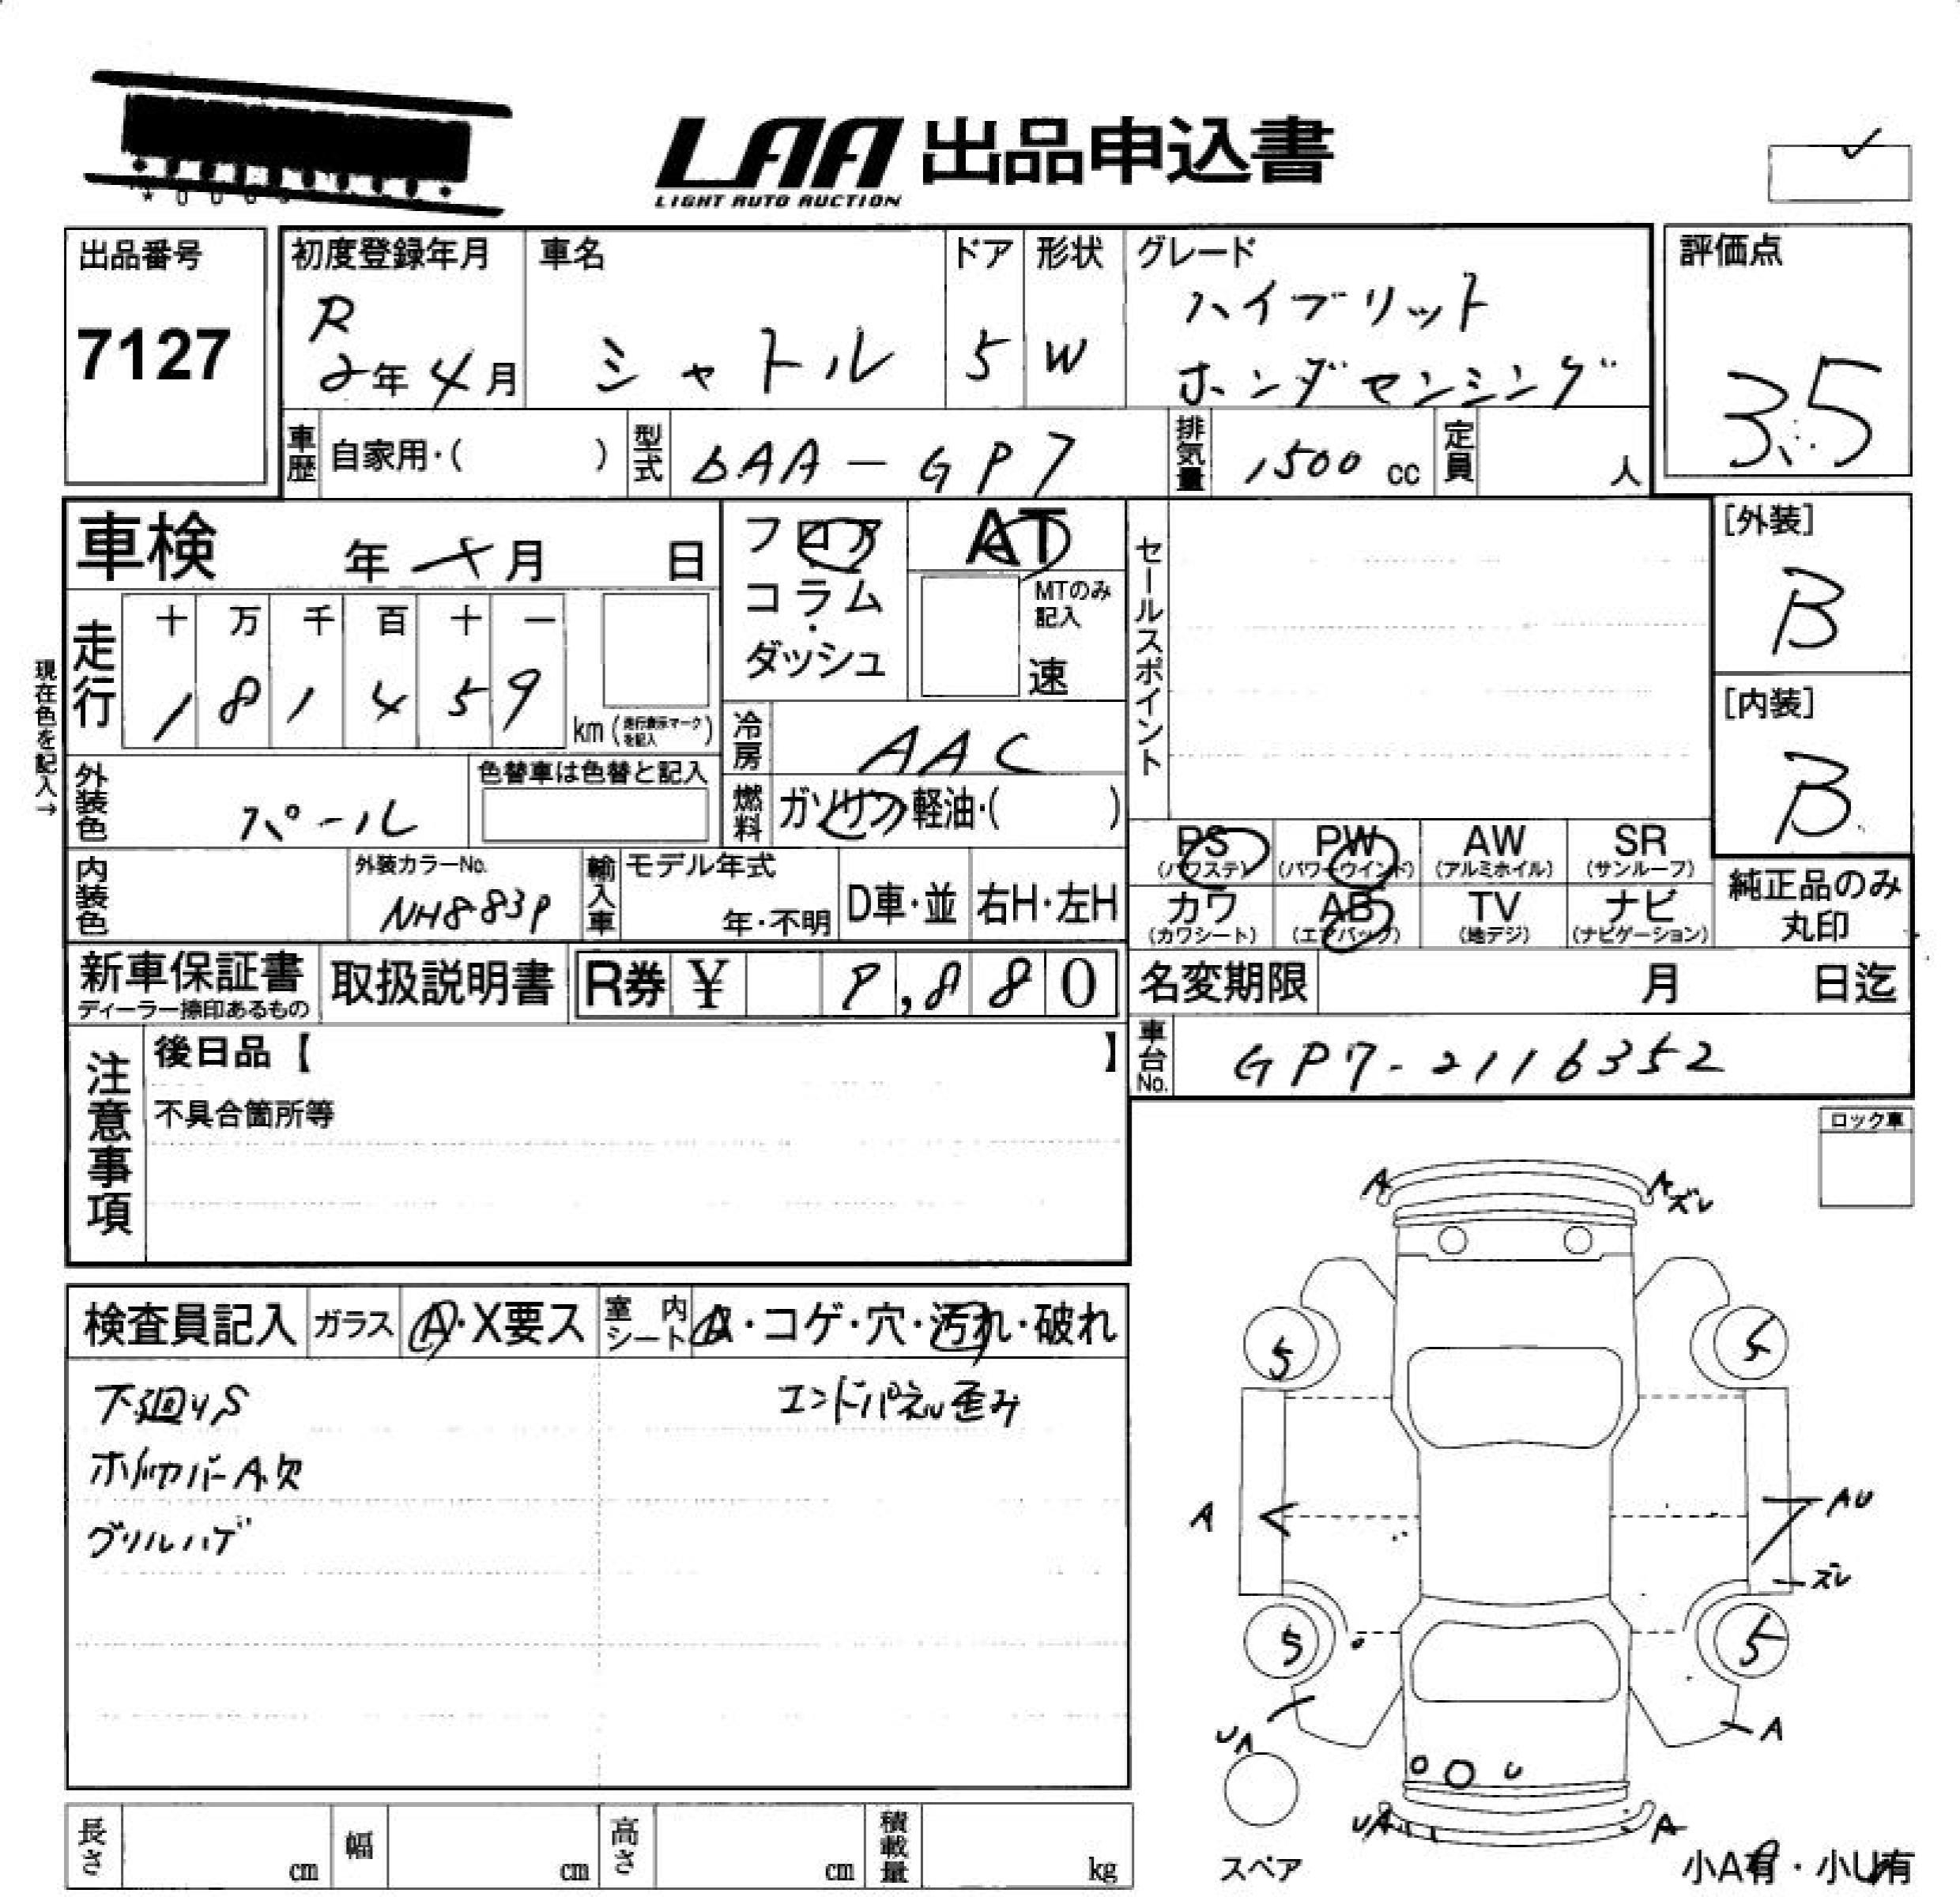 LAA 出品申込書
LIGHT AUTO AUCTION
出品番号
7127
初度登録年月
R
2年4月
車名
シャトル
ドア
5
形状
W
グレード
ハイブリット
ホンダセンシング
評価点
3.5
車歴 自家用・( )
型式 DAA-GP7
排気量 1500 cc
定員 人
車検 年 月 日
フロア
コラム
・
ダッシュ
AT
MTのみ
記入
速
セールスポイント
[外装]
B
[内装]
B
現在色を記入→
走行
十 万 千 百 十 一
1 8 1 4 5 9
km (走行表示マークを記入)
冷房 AAC
外装色 パール
色替車は色替と記入
燃料 ガソリン・軽油・( )
内装色
外装カラーNo.
NH883P
輸入車
モデル年式
年・不明
D車・並
右H・左H
PS
(パワステ)
PW
(パワーウインド)
AW
(アルミホイル)
SR
(サンルーフ)
カワ
(カワシート)
AB
(エアバック)
TV
(地デジ)
ナビ
(ナビゲーション)
純正品のみ
丸印
新車保証書
ディーラー捺印あるもの
取扱説明書
R券 ¥ 9,880
名変期限 月 日迄
車台No. GP7-2116352
注意事項
後日品【 】
不具合箇所等
ロック車
検査員記入 ガラス A・X要ス
室内シート A・コゲ・穴・汚れ・破れ
下廻りS
エンドパネル歪み
ホイルカバーA欠
グリルハゲ
A
A ズレ
5
5
A
AU
ズレ
5
5
UA
A
U
UA
A
スペア
小A有・小U有
長さ cm
幅 cm
高さ cm
積載量 kg